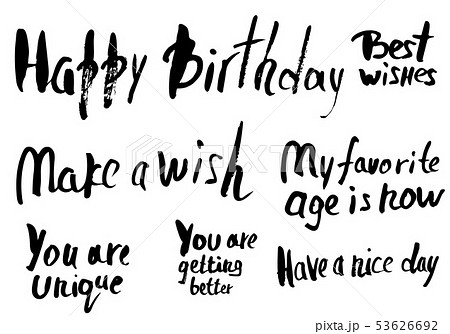 Happy Birthday
Best
wishes
Make a wish
My favorite
age is now
You are
unique
You are
getting
better
Have a nice day
PIXTA
pixta.jp - 53626692